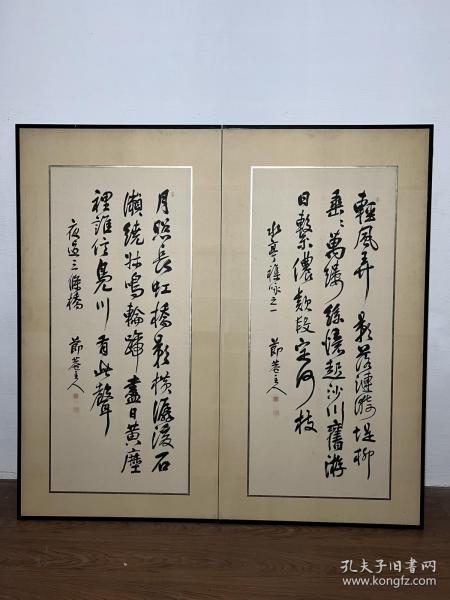 輕風弄影落漣漪堤柳
垂々萬縷絲憶起沙川舊游
日繫儂款段定何枝
水亭雜咏之一
節菴主人
月照長虹橋影横潺湲石
瀬繞牀鳴輪蹄盡日黄塵
裡誰信鳧川有此聲
夜過三條橋
節菴主人
孔夫子旧书网
www.kongfz.com